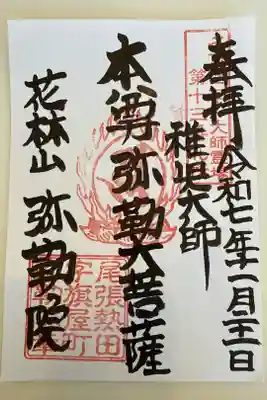 奉拝
令和七年十一月
稚児大師
本尊 弥勒大菩薩
花林山 弥勒院
第十三
大師霊
尾張熱田
字旗屋町